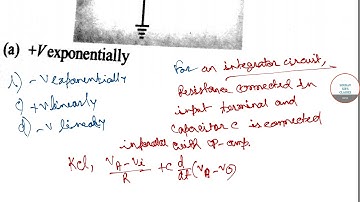 (a) +V exponentially
b) -V exponentially
c) +V linearly
d) -V linearly
For an integrator circuit,
Resistance connected in
input terminal and
capacitor C is connected
with op-amp.
KCL, (V_A - V_i)/R + C d/dt (V_A - V_0)